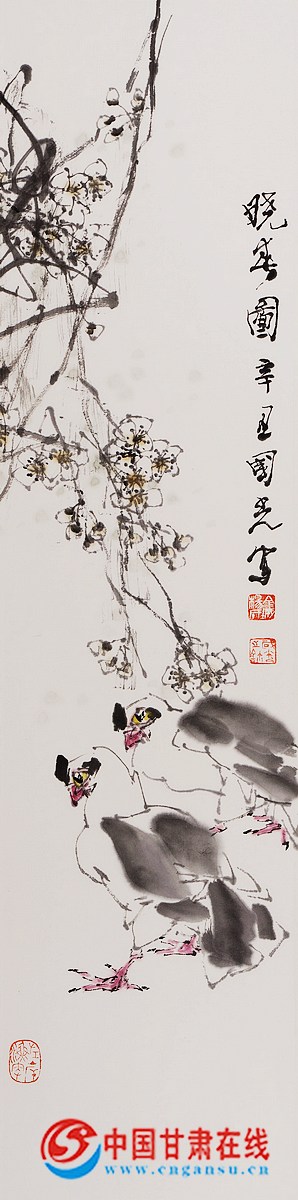 晓春图 辛丑国光写
中国甘肃在线
www.cngansu.cn